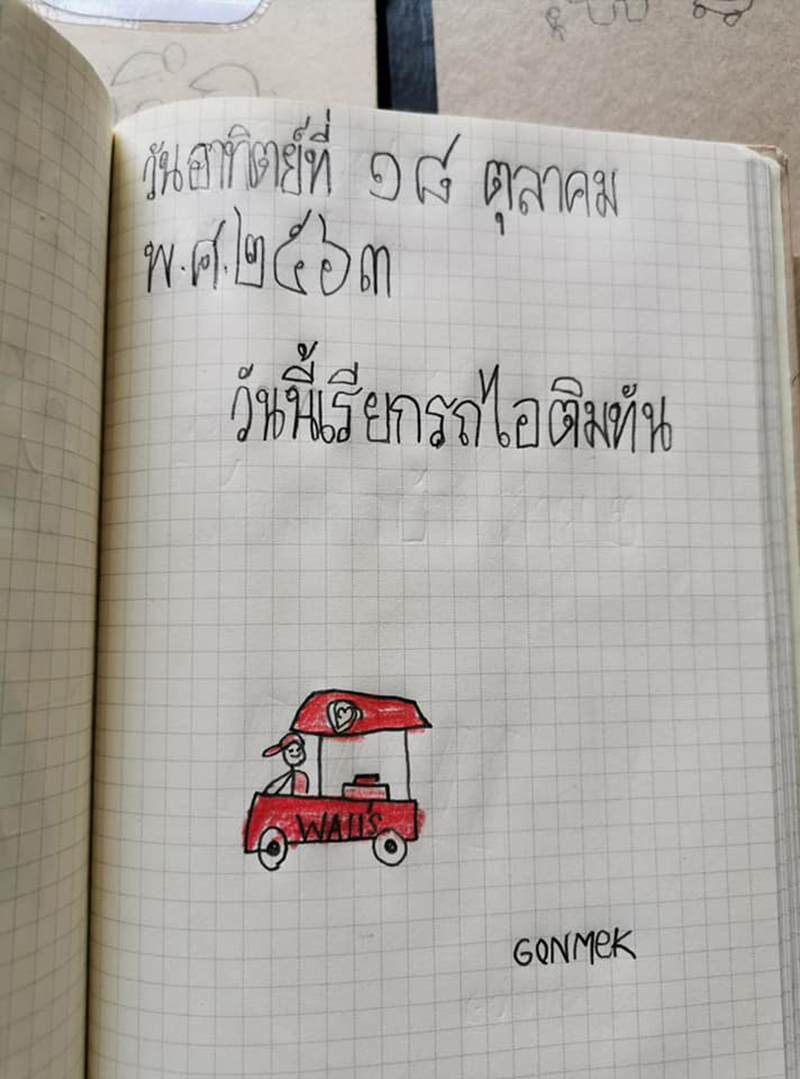 วันอาทิตย์ที่ ๑๘ ตุลาคม
พ.ศ.๒๕๖๓
วันนี้เรียกรถไอติมทัน
WAll's
GONMEK